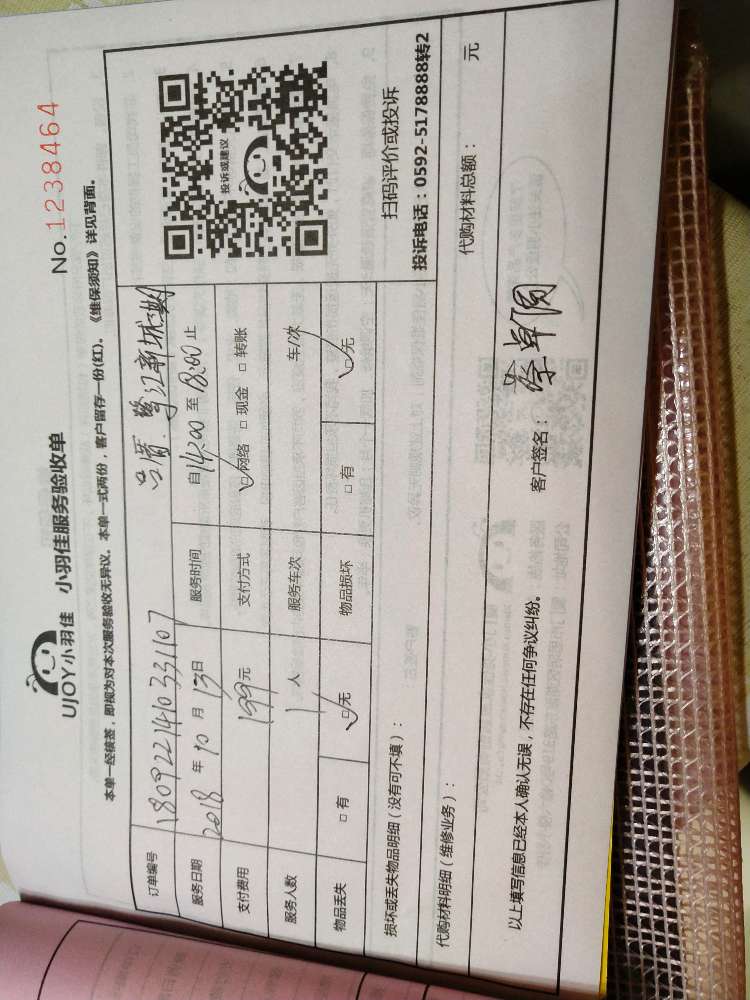 No.1238464
UJOY小羽佳 小羽佳服务验收单
本单一经核签，即视为对本次服务验收无异议。本单一式两份，客户留存一份(红)。《维保须知》详见背面。
订单编号 180922141033107
服务日期 2018年10月13日 服务时间 自14:00至18:00止
支付费用 199元 支付方式 ☑网络 □现金 □转账
服务人数 1人 服务车次 车/次
物品丢失 □有 ☑无 物品损坏 □有 ☑无
投诉或建议
扫码评价或投诉
投诉电话：0592-5178888转2
损坏或丢失物品明细（没有可不填）：
代购材料明细（维修业务）： 代购材料总额： 元
以上填写信息已经本人确认无误，不存在任何争议纠纷。 客户签名：